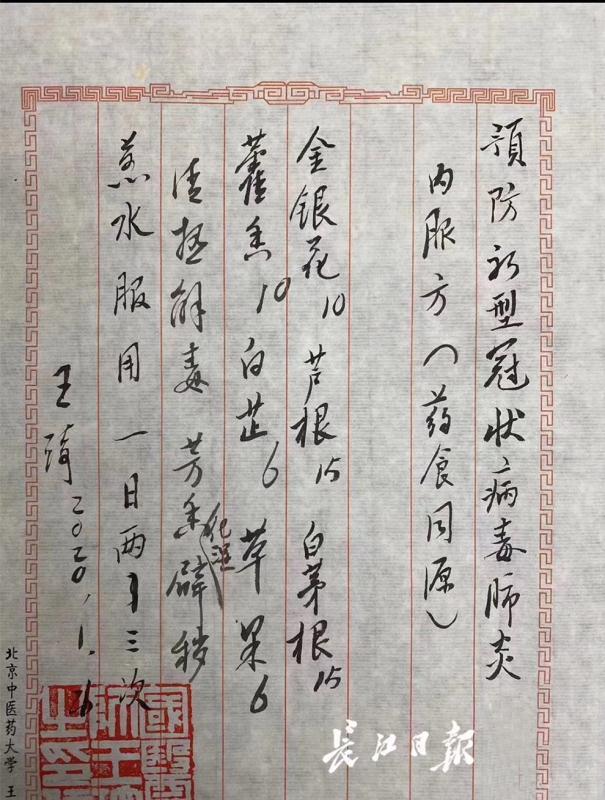 预防新型冠状病毒肺炎
内服方（药食同源）
金银花10 芦根15 白茅根15
藿香10 白芷6 草果6
清热解毒 芳香化浊辟秽
煮水服用 一日两～三次
王琦 2020.1.
北京中医药大学 王
國醫
长江日报